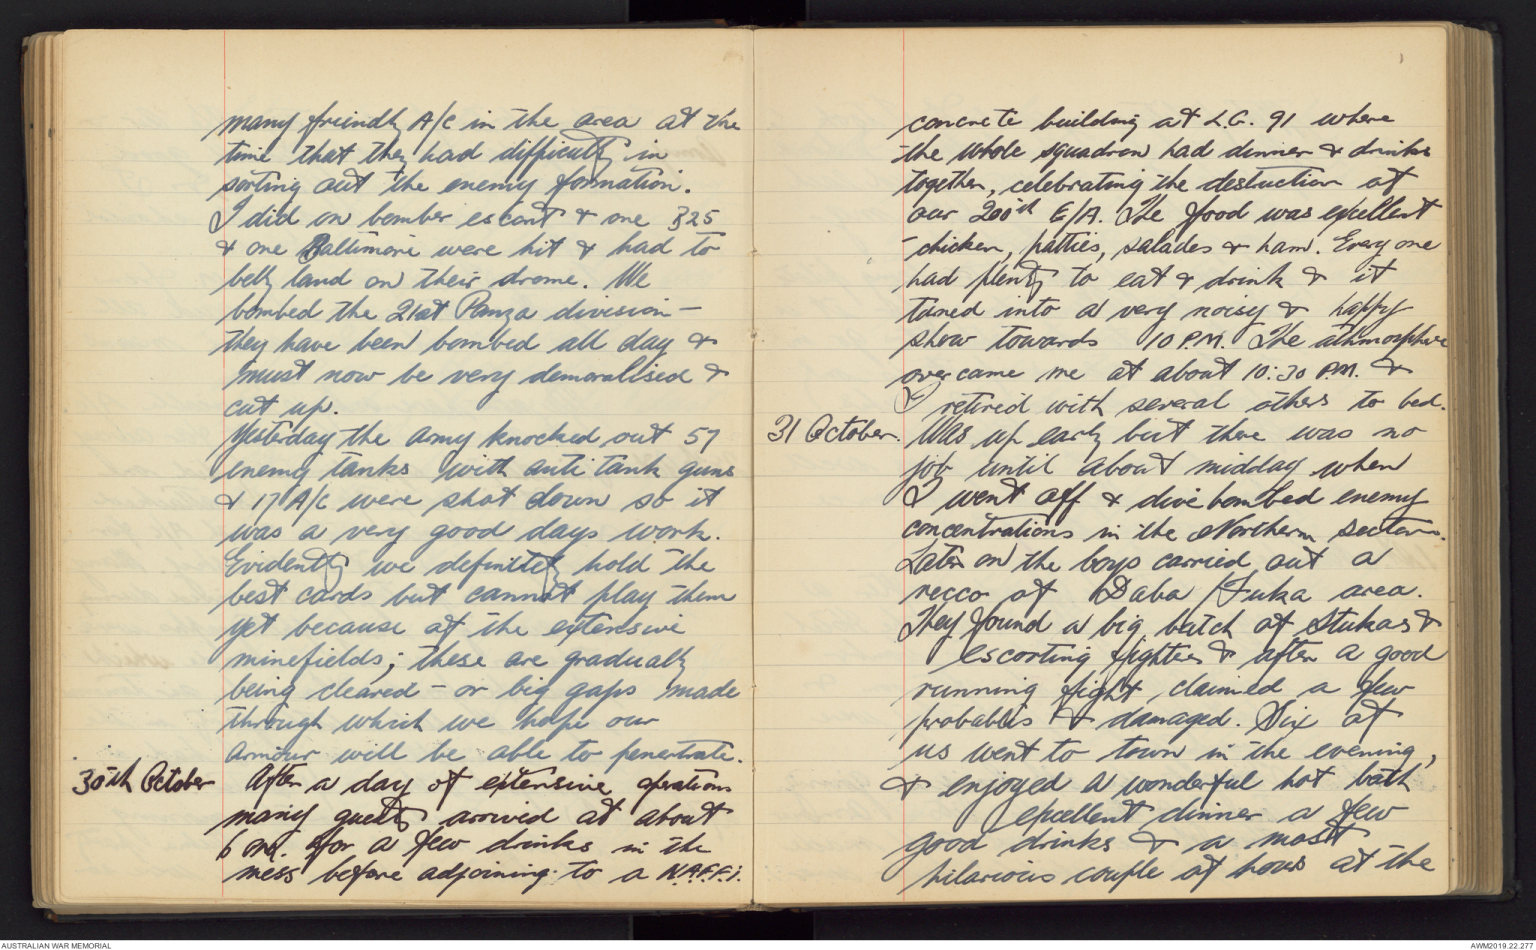 many friendly A/C in the area at the
time that they had difficulty in
sorting out the enemy formation.
I did on bomber escort & one B25
& one Baltimore were hit & had to
belly land on their drome. We
bombed the 21st Panza division -
they have been bombed all day &
must now be very demoralised &
cut up.
Yesterday the army knocked out 57
enemy tanks with anti tank guns
& 17 A/C were shot down so it
was a very good days work.
Evidently we definitely hold the
best cards but cannot play them
yet because of the extensive
minefields; these are gradually
being cleared - or big gaps made
through which we hope our
armour will be able to penertrate.
30th October After a day of extensive operations
many guests arrived at about
6 P.M. for a few drinks in the
mess before adjoining to a N.A.F.F.I.
concrete building at L.G. 91 where
the whole squadron had dinner & drinks
together, celebrating the destruction of
our 200th E/A. The food was excellent
- chicken, patties, salades & ham. Every one
had plenty to eat & drink & it
tuned into a very noisy & happy
show towards 10 P.M. The athmosphere
over came me at about 10:30 P.M. &
I retired with several others to bed.
31 October. Was up early but there was no
job until about midday when
I went off & dive bombed enemy
concentrations in the Northern sector.
Later on the boys carried out a
recco of Daba / Fuka area.
They found a big batch of Stukas &
escorting fighters & after a good
running fight claimed a few
probables & damaged. Six of
us went to town in the evening,
& enjoyed a wonderful hot bath
excellent dinner a few
good drinks & a most
hilarious couple of hours at the
AUSTRALIAN WAR MEMORIAL
AWM2019.22.277